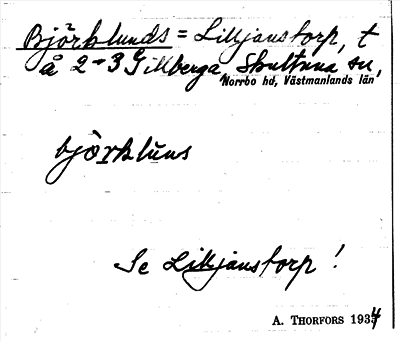 Björklunds = Lilljanstorp, t
å 2-3 Gillberga, Skultuna sn,
Norrbo hd, Västmanlands län
bjö̀rklŭns
Se Lilljanstorp !
A. THORFORS 1934